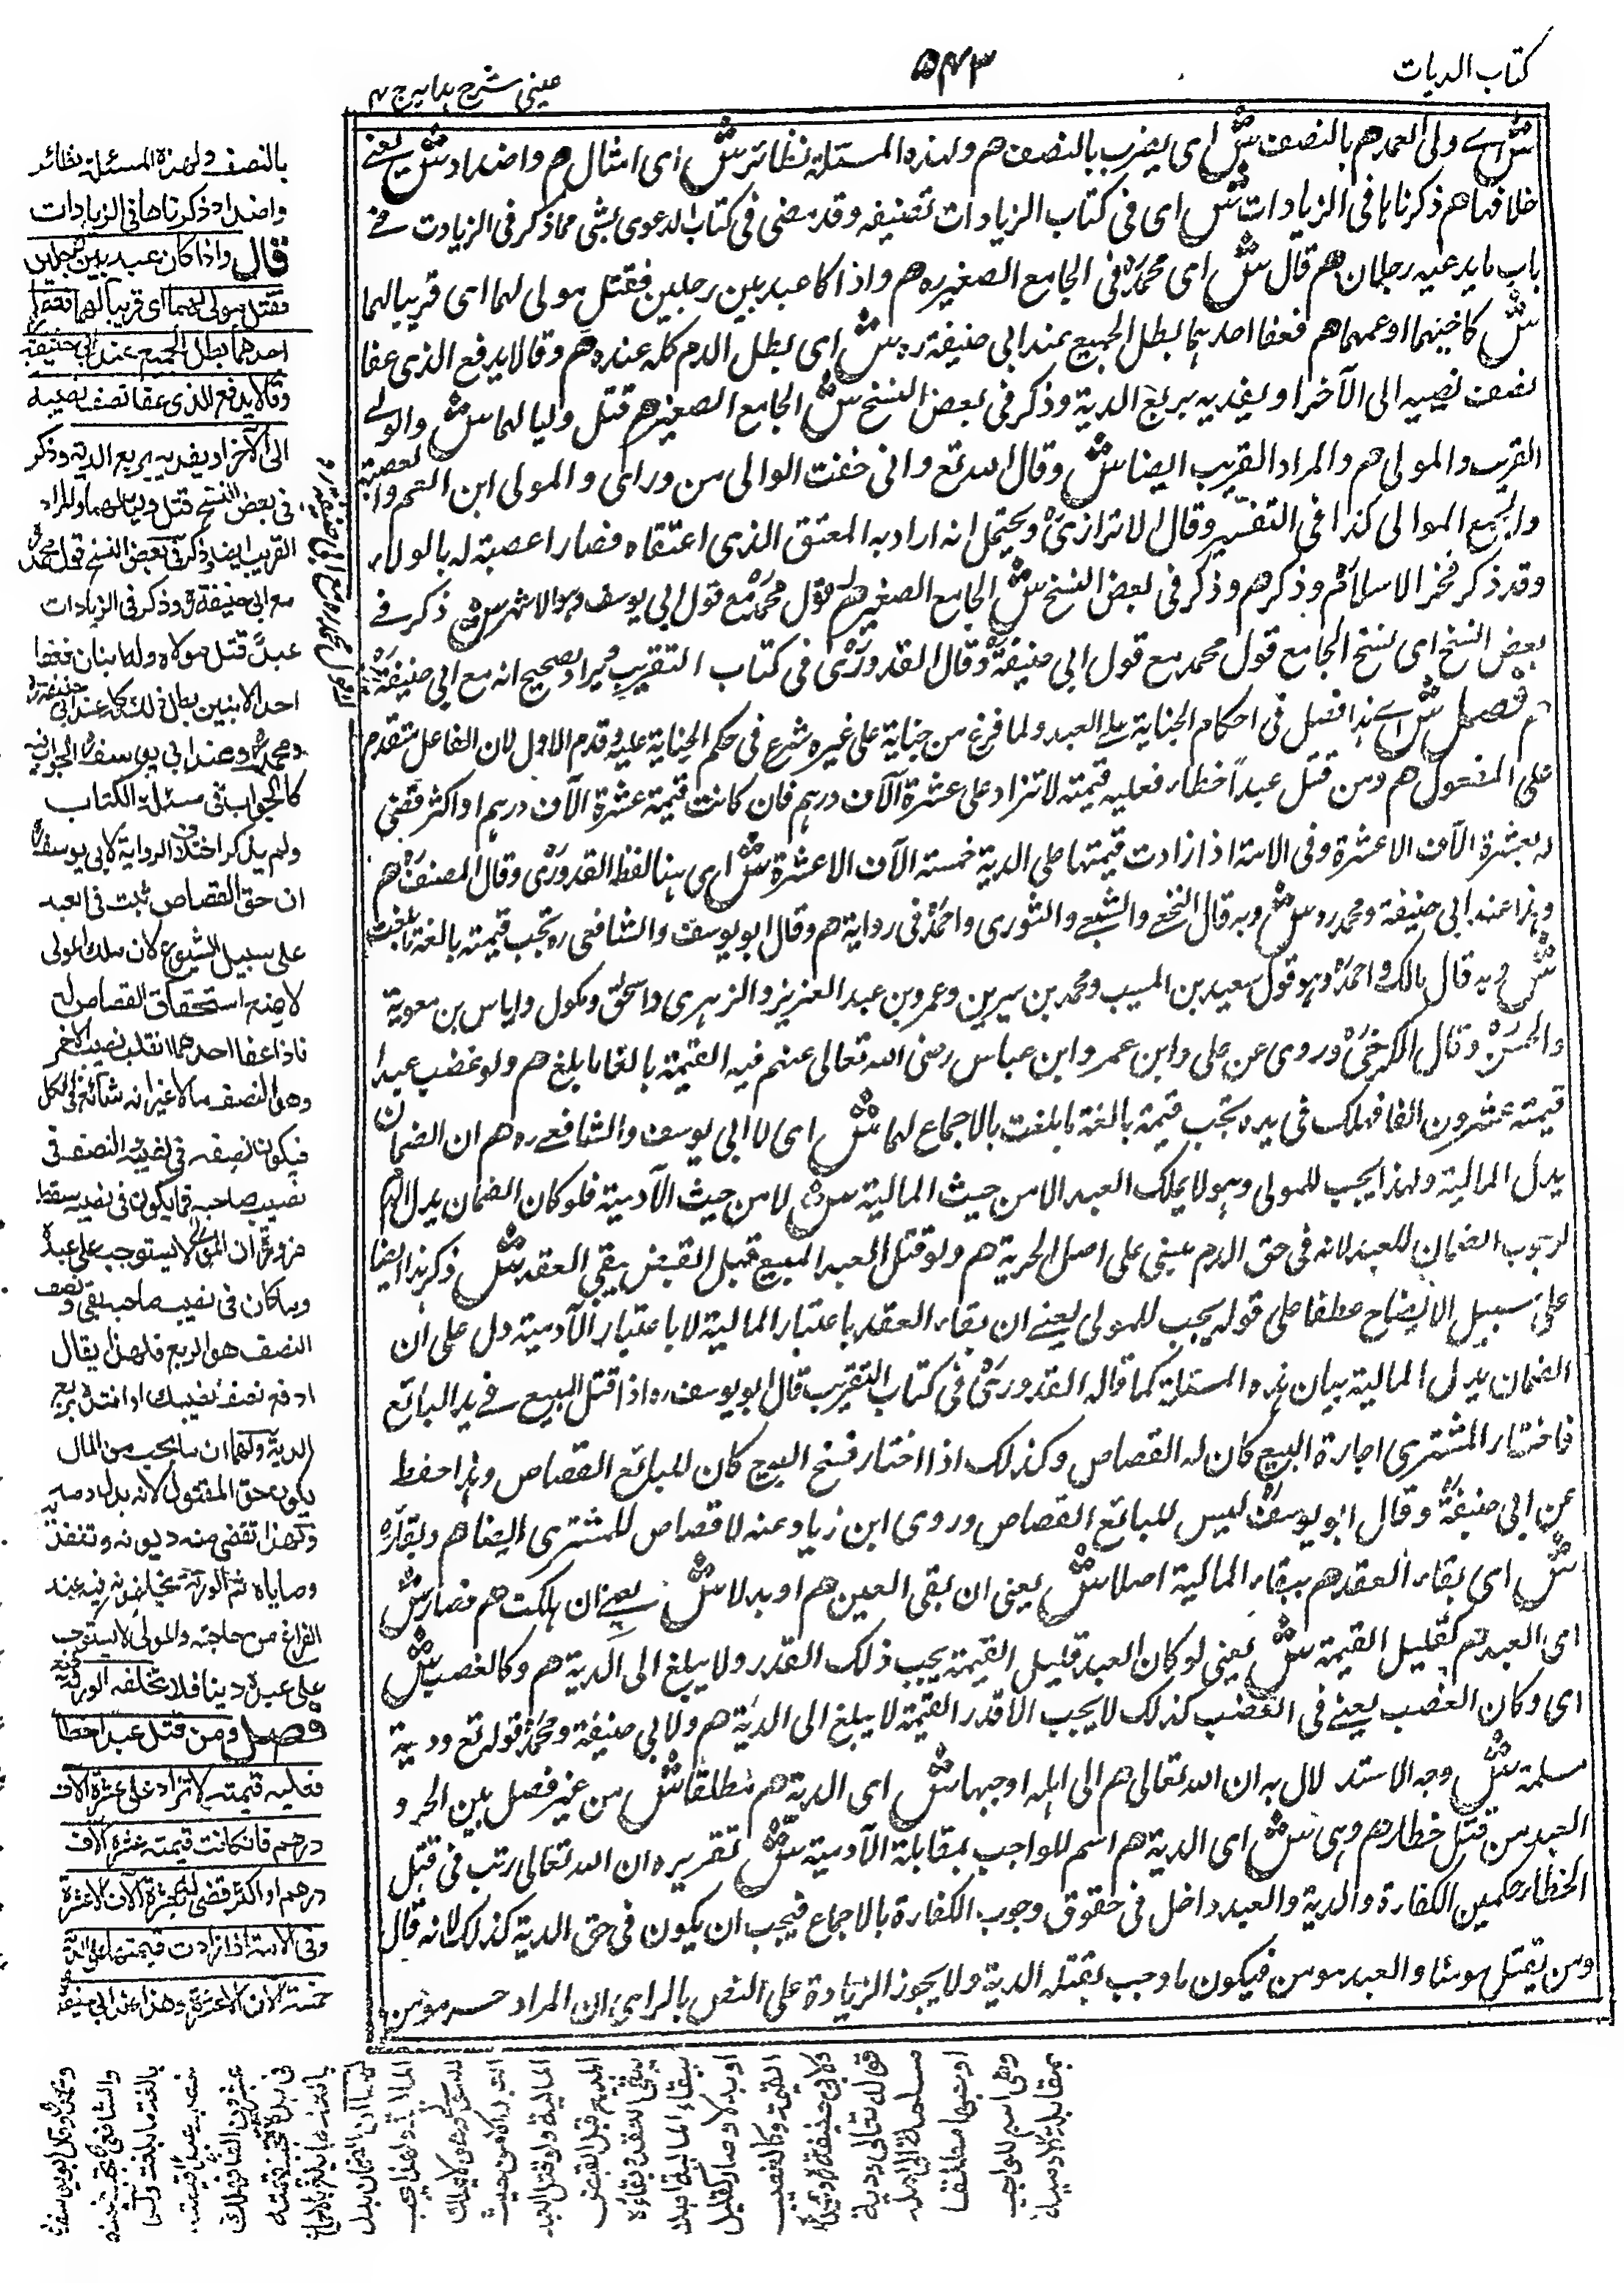 كتاب الديات
٥٤٣
عيني شرح هدايه ج ٤
ش اے ولى العمد هم بالنصف ش اى يضرب بالنصف هم ولهذه المسئلة نظائر ش اى امثال هم واضداد ش يعنے
خلافها هم ذكرناها فى الزيادات ش اى فى كتاب الزيادات تصنيفه وقد مضى فى كتاب الدعوى بشى مما ذكر فى الزيادت فے
باب ما يدعيه رجلان هم قال ش اى محمدؒ فى الجامع الصغيره هم واذا كا عبد بين رجلين فقتل مولى لهما اى قريبا لهما
ش كاخيهما او عمهما هم فعفا احدهما بطل الجميع عند ابى حنيفة ره ش اى بطل الدم كله عنده هم وقالا يدفع الذى عفا
نصف نصيبه الى الآخر او يفديه بربع الدية وذكر فى بعض النسخ ش الجامع الصغير هم قتل وليا لهما ش والولے
القرب والمولى هم والمراد القريب ايضا ش وقال الله تع وانى خفت الموالى من وراى والمولى ابن العم والعصبة
والجمع الموالى كذا فى التفسير وقال الاترازىؒ ويحتمل انه اراد به المعتق الذى اعتقاه فصارا عصبة له بالولاء
وقد ذكر فخر الاسلامؒ وذكر هم وذكر فى بعض النسخ ش الجامع الصغير هم قول محمدؒ مع قول ابى يوسف وهو الاشهر ش ذكر فے
بعض النسخ اى نسخ الجامع قول محمد مع قول ابى حنيفةؒ وقال القدورىؒ فى كتاب التقريب غير ان الصحيح انه مع ابى حنيفةؒ
هم فصل ش اے هذا فصل فى احكام الجناية على العبد ولما فرغ من جناية على غيره شرع فى حكم الجناية عليه وقدم الاول لان الفاعل متقدم
على المفعول هم ومن قتل عبداً خطاء فعليه قيمته لا تزاد على عشرة آلاف درهم فان كانت قيمته عشرة آلاف درهم او اكثر قضى
له بعشرة آلاف الا عشرة وفى الامة اذا زادت قيمتها على الدية خمسة آلاف الا عشرة ش اى هنا لفظ القدورىؒ وقال المصنفؒ هم
وهذا عند ابى حنيفة ومحمد ره ش وبه قال النخعے والشعبے والثورى واحمدؒ فى رواية هم وقال ابو يوسف والشافعى ره تجب قيمته بالغة ما بلغت
ش وبه قال مالك واحمدؒ وهو قول سعيد بن المسيب ومحمد بن سيرين وعمر بن عبد العزيز والزهرى واسحق ومكول واياس بن معوية
والحسنؒ وقال الكرخىؒ وروى عن على وابن عمر وابن عباس رضى الله تعالى عنهم فيه القيمة بالغا ما بلغ هم ولو غصب عبدا
قيمته عشرون الفا فهلك فى يده تجب قيمته بالغة ما بلغت بالاجماع لهما ش اى لابى يوسف والشافعے ره هم ان الضمان
بدل المالية ولهذا يجب للمولى وهو لا يملك العبد الا من حيث المالية ش لا من حيث الآدمية فلو كان الضمان بدل الدم
لوجوب الضمان للعبد لانه فى حق الدم مبنى على اصل الحرية هم ولو قتل العبد المبيع قبل القبض يبقى العقد ش ذكر هذا ايضا
على سبيل الايضاح عطفا على قوله يجب للمولى يعنے ان بقاء العقد باعتبار المالية لا باعتبار الآدمية دل على ان
الضمان بدل المالية بيان هذه المسئلة كما قاله القدورىؒ فى كتاب التقريب قال ابو يوسف ره اذا قتل المبيع فے يد البائع
فاختار المشترى اجازة البيع كان له القصاص وكذلك اذا اختار فسخ البيع كان للبائع القصاص وهذا حفظ
عن ابى حنيفةؒ وقال ابو يوسفؒ ليس للبائع القصاص وروى ابن زياد عنه لا قصاص للمشترى ايضا هم وبقاؤه
ش اى بقاء العقد هم ببقاء المالية اصلا ش يعنى ان بقى العين هم او بدلا ش يعنے ان هلكت هم فصار ش
اى العبد هم كقليل القيمة ش يعنى لو كان العبد قليل القيمة يجب ذلك القدر ولا يبلغ الى الدية هم وكالغصب ش
اى وكان الغصب يعنے فى الغصب كذلك لا يجب الا قدر القيمة لا يبلغ الى الدية هم ولابى حنيفة ومحمدؒ قوله تع ودية
مسلمة ش وجه الاستد لال به ان الله تعالى هم الى اهله اوجبها ش اى الدية هم مطلقا ش من غير فصل بين الحر و
العبد من قتل خطاء هم وهى ش اى الدية هم اسم للواجب بمقابلة الآدمية ش تقريره ان الله تعالى رتب فى قتل
الخطاء حكمين الكفارة والدية والعبد داخل فى حقوق وجوب الكفارة بالاجماع فيجب ان يكون فى حق الدية كذلك لانه قال
ومن يقتل مومنا والعبد مومن فيكون ما وجب بقتله الدية ولا يجوز الزيادة على النص بالراى ان المراد حر مومن
بالنصف ولهذه المسئلة نظائر
واضداد ذكرناها فى الزيادات
قال واذا كان عبد بين رجلين
فقتل مولى لهما اى قريبا لهما فعفا
احدهما بطل الجميع عند ابى حنيفةؒ
وقالا يدفع الذى عفا نصف نصيبه
الى الآخر او يفديه بربع الدية وذكر
فى بعض النسخ قتل وليا لهما والمراد
القريب ايضا وذكر فى بعض النسخ قول محمدؒ
مع ابى حنيفةؒ وذكر فى الزيادات
عبد قتل مولاه وله ابنان فعفا
احد الابنين بطل ذلك كله عند ابى حنيفةؒ
ومحمدؒ وعند ابى يوسفؒ الجواب فيه
كالجواب فى مسئلة الكتاب
ولم يذكر اختلاف الرواية لابى يوسفؒ
ان حق القصاص ثبت فى العبد
على سبيل الشيوع لان ملك المولى
لا يمنع استحقاق القصاص له
فاذا عفا احدهما انقلب نصيب الآخر
وهو النصف مالا غير انه شائع فى الكل
فيكون نصفه فى نصيبه والنصف فى
نصيب صاحبه فما يكون فى نصيبه سقط
ضرورة ان المولى لا يستوجب على عبده
وما كان فى نصيب صاحبه بقى ونصف
النصف هو الربع فلهذا يقال
ادفع نصف نصيبك او افتده بربع
الدية ولهما ان ما يجب من المال
يكون حق المقتول لانه بدل دمه
ولهذا تقضى منه ديونه وتنفذ به
وصاياه ثم الورثة يخلفونه فيه عند
الفراغ من حاجته والمولى لا يستوجب
على عبده دينا فلا تخلفه الورثة فيه
فصل ومن قتل عبدا خطأ
فعليه قيمته لا تزاد على عشرة آلاف
درهم فان كانت قيمته عشرة آلاف
درهم او اكثر قضى له بعشرة آلاف الا عشرة
وفى الامة اذا زادت قيمتها على الدية
خمسة آلاف الا عشرة وهذا عند ابى حنيفة
ومحمدؒ وقال ابو يوسفؒ
والشافعىؒ تجب قيمته
بالغة ما بلغت ولو
غصب عبدا قيمته
عشرون الفا فهلك
فى يده تجب قيمته
بالغة ما بلغت بالاجماع
لهما ان الضمان بدل
المالية ولهذا يجب
للمولى وهو لا يملك
العبد الا من حيث
المالية ولو قتل العبد
المبيع قبل القبض
يبقى العقد وبقاؤه
ببقاء المالية اصلا
او بدلا وصار كقليل
القيمة وكالغصب
ولابى حنيفة ومحمدؒ
قوله تعالى ودية
مسلمة الى اهله
اوجبها مطلقا
وهى اسم للواجب
بمقابلة الآدمية